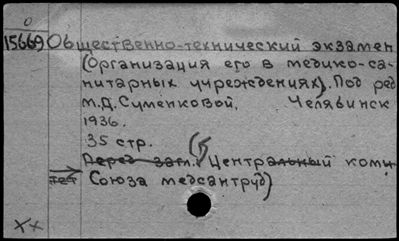 15669 Общественно-технический экзамен
(Организация его в медико-са-
нитарных учреждениях). Под ред
М.Д. Суменковой. Челябинск
1936.
35 стр.
Перед загл.: Центральный коми
Союза медсантруд)
XX